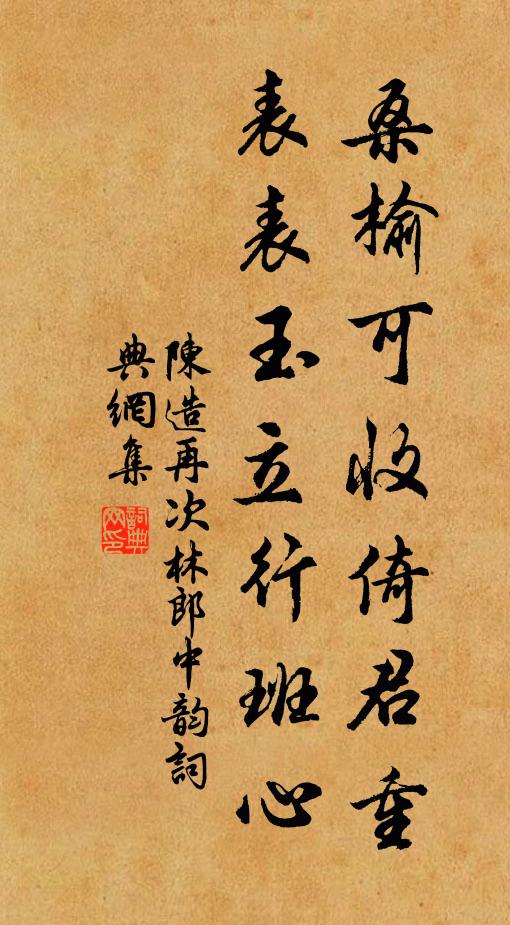 桑榆可收倚君重
表表玉立行班心
陳造再次林郎中韵詞
典網集
詞典